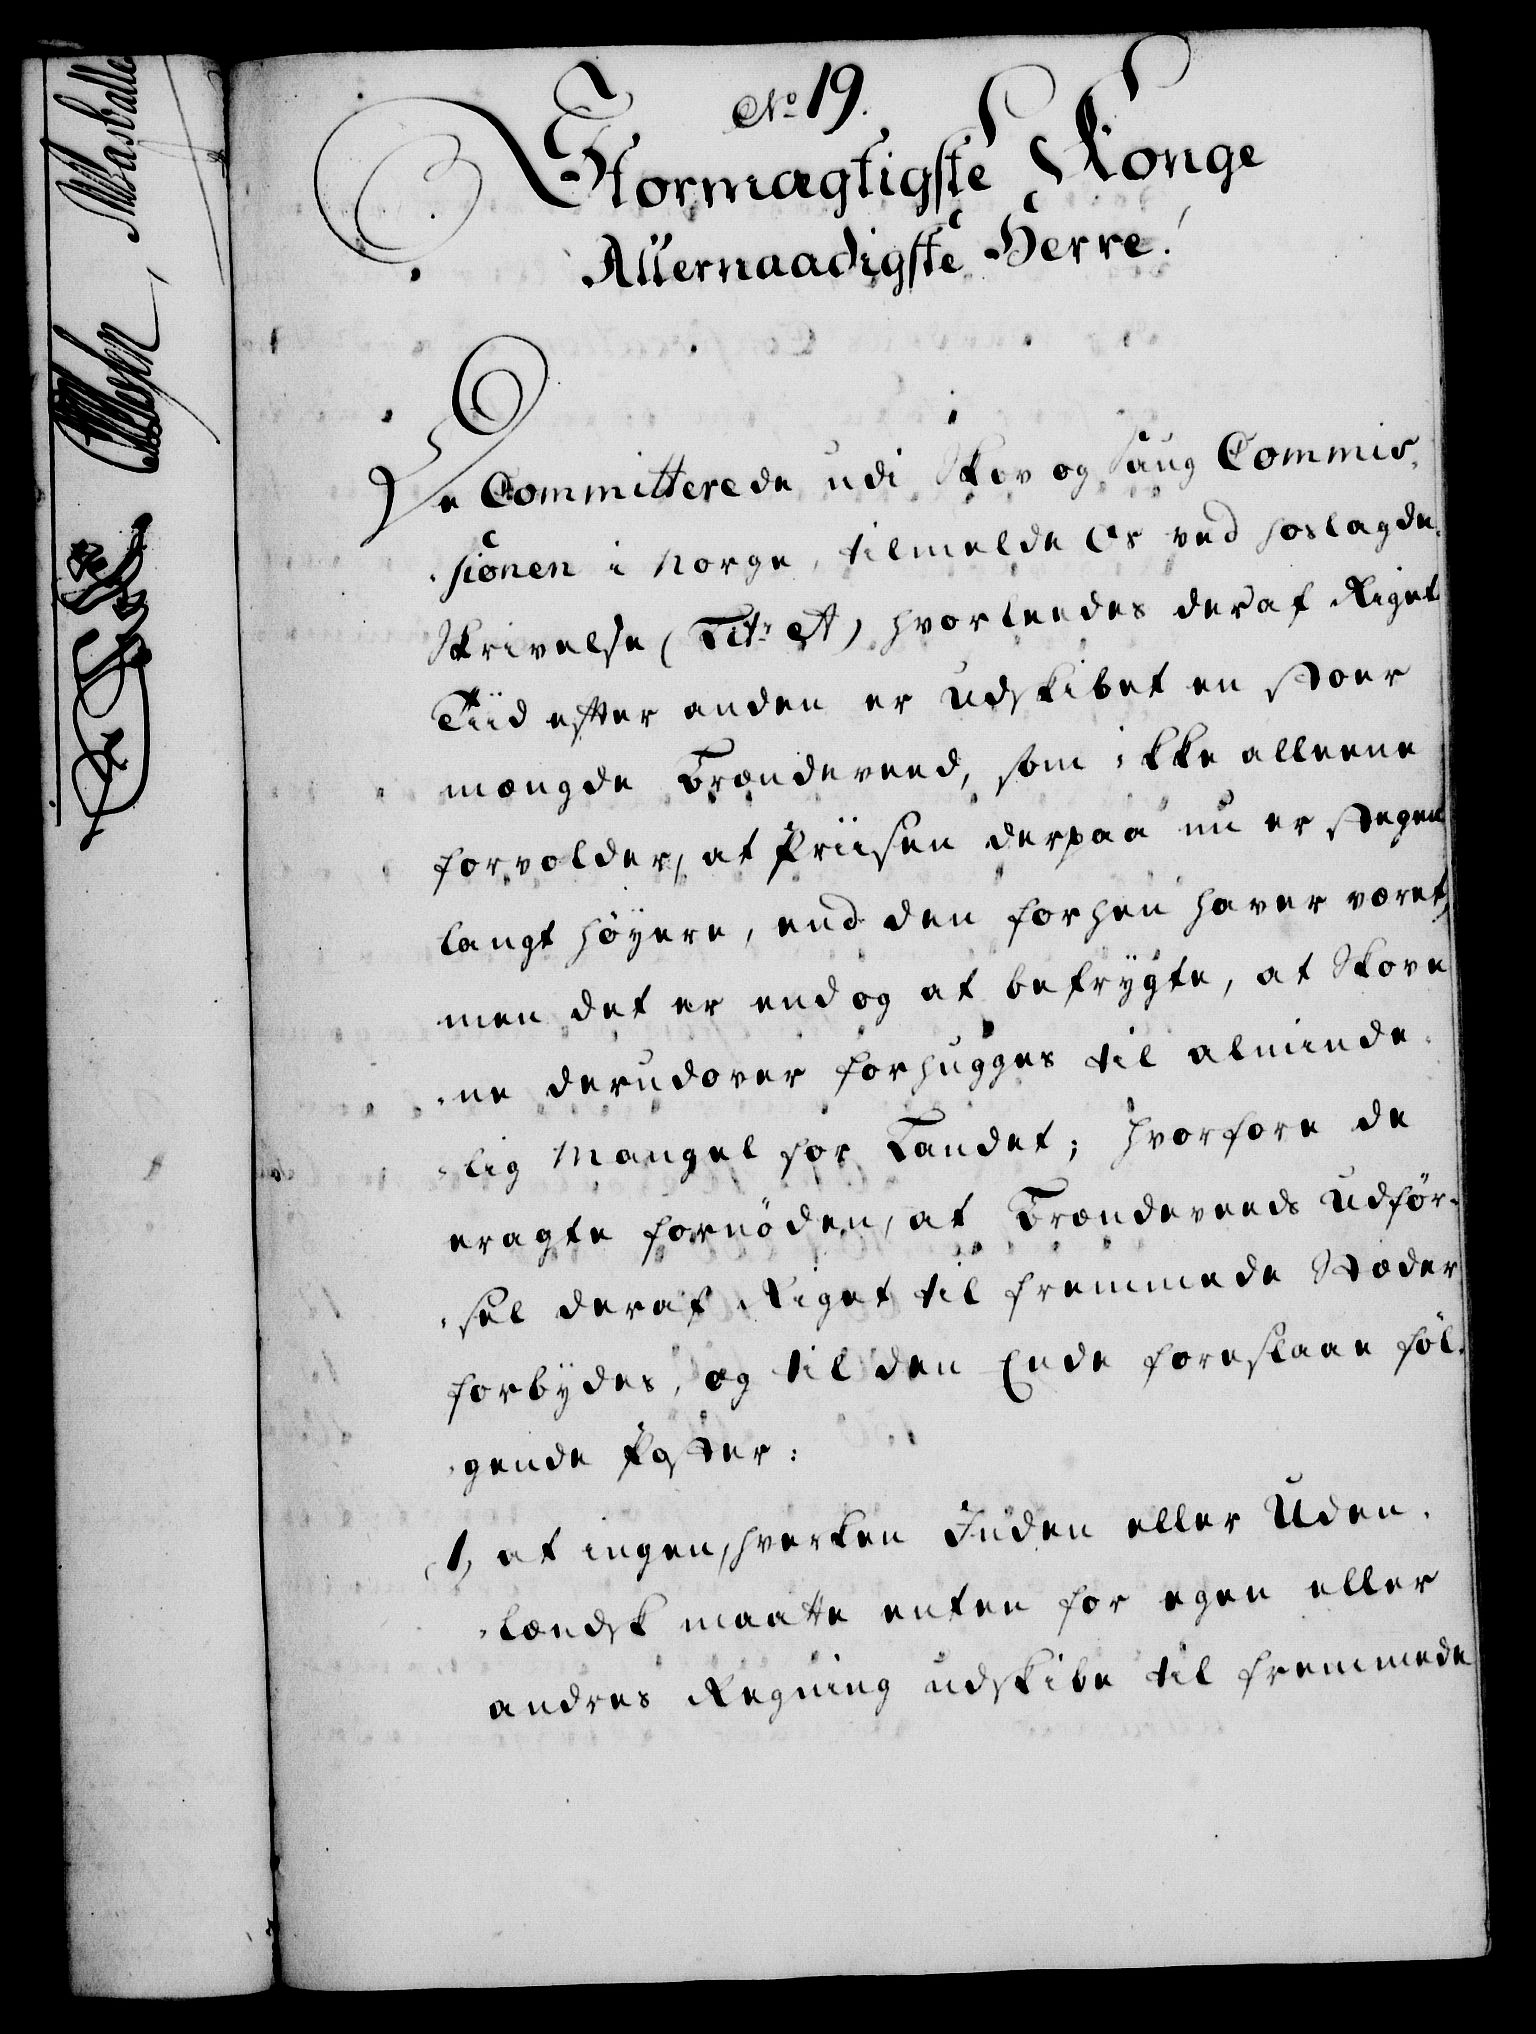 No 19.
Stormægtigste Konge
Allernaadigste Herre!
De Committerede udi Skov og Saug Commis-
-sionen i Norge, tilmelde Os ved hoslagde
Skrivelse (Litr A) hvorleedes deraf Riget
Tiid efter anden er udskibet en stoer
mængde Brændeveed, som ikke alleene
forvolder, at Priisen derpaa nu er stegen
langt höyere, end den forhen haver været,
men det er endog at befrygte, at Skove
-ne derudover forhugges til alminde-
-lig Mangel for Landet; hvorfore de
eragte fornöden, at Brændeveeds Udför-
-sel deraf Riget til fremmede Stæder
forbydes, og til den Ende foreslaae föl-
-gende Poster:
1, at ingen, hverken Inden eller Uden-
-lændsk maatte enten for egen eller
andres Regning udskibe til fremmede